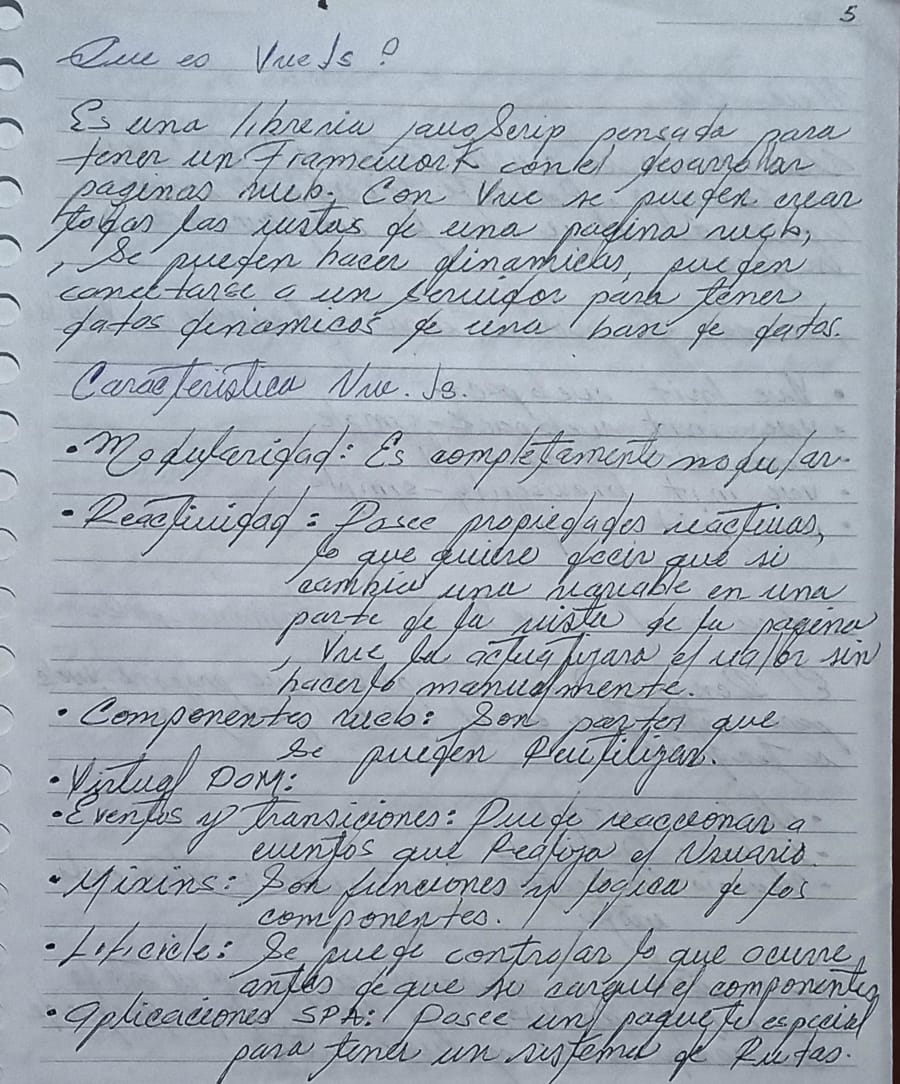 5
Que es VueJs?
Es una libreria javaScrip pensada para
tener un Framework con el desarrollar
paginas web; Con Vue se pueden crear
todas las vistas de una pagina web,
, Se pueden hacer dinamicas, pueden
conectarse a un servidor para tener
datos dinamicos de una base de datos.
Caracteristica Vue.Js.
• Modularidad: Es completamente modular.
• Reactividad: Posee propiedades reactivas,
lo que quiere decir que si
cambia una variable en una
parte de la vista de la pagina
, Vue la actualizara el valor sin
hacerlo manualmente.
• Componentes web: Son partes que
se pueden Reutilizar.
• Virtual DOM:
• Eventos y transiciones: Puede reaccionar a
eventos que Realiza el Usuario.
• Mixins: Son funciones y logica de los
componentes.
• Lificicle: Se puede controlar lo que ocurre
antes de que se cargue el componente
• Aplicaciones SPA: Posee un paquete especial
para tener un sistema de Rutas.